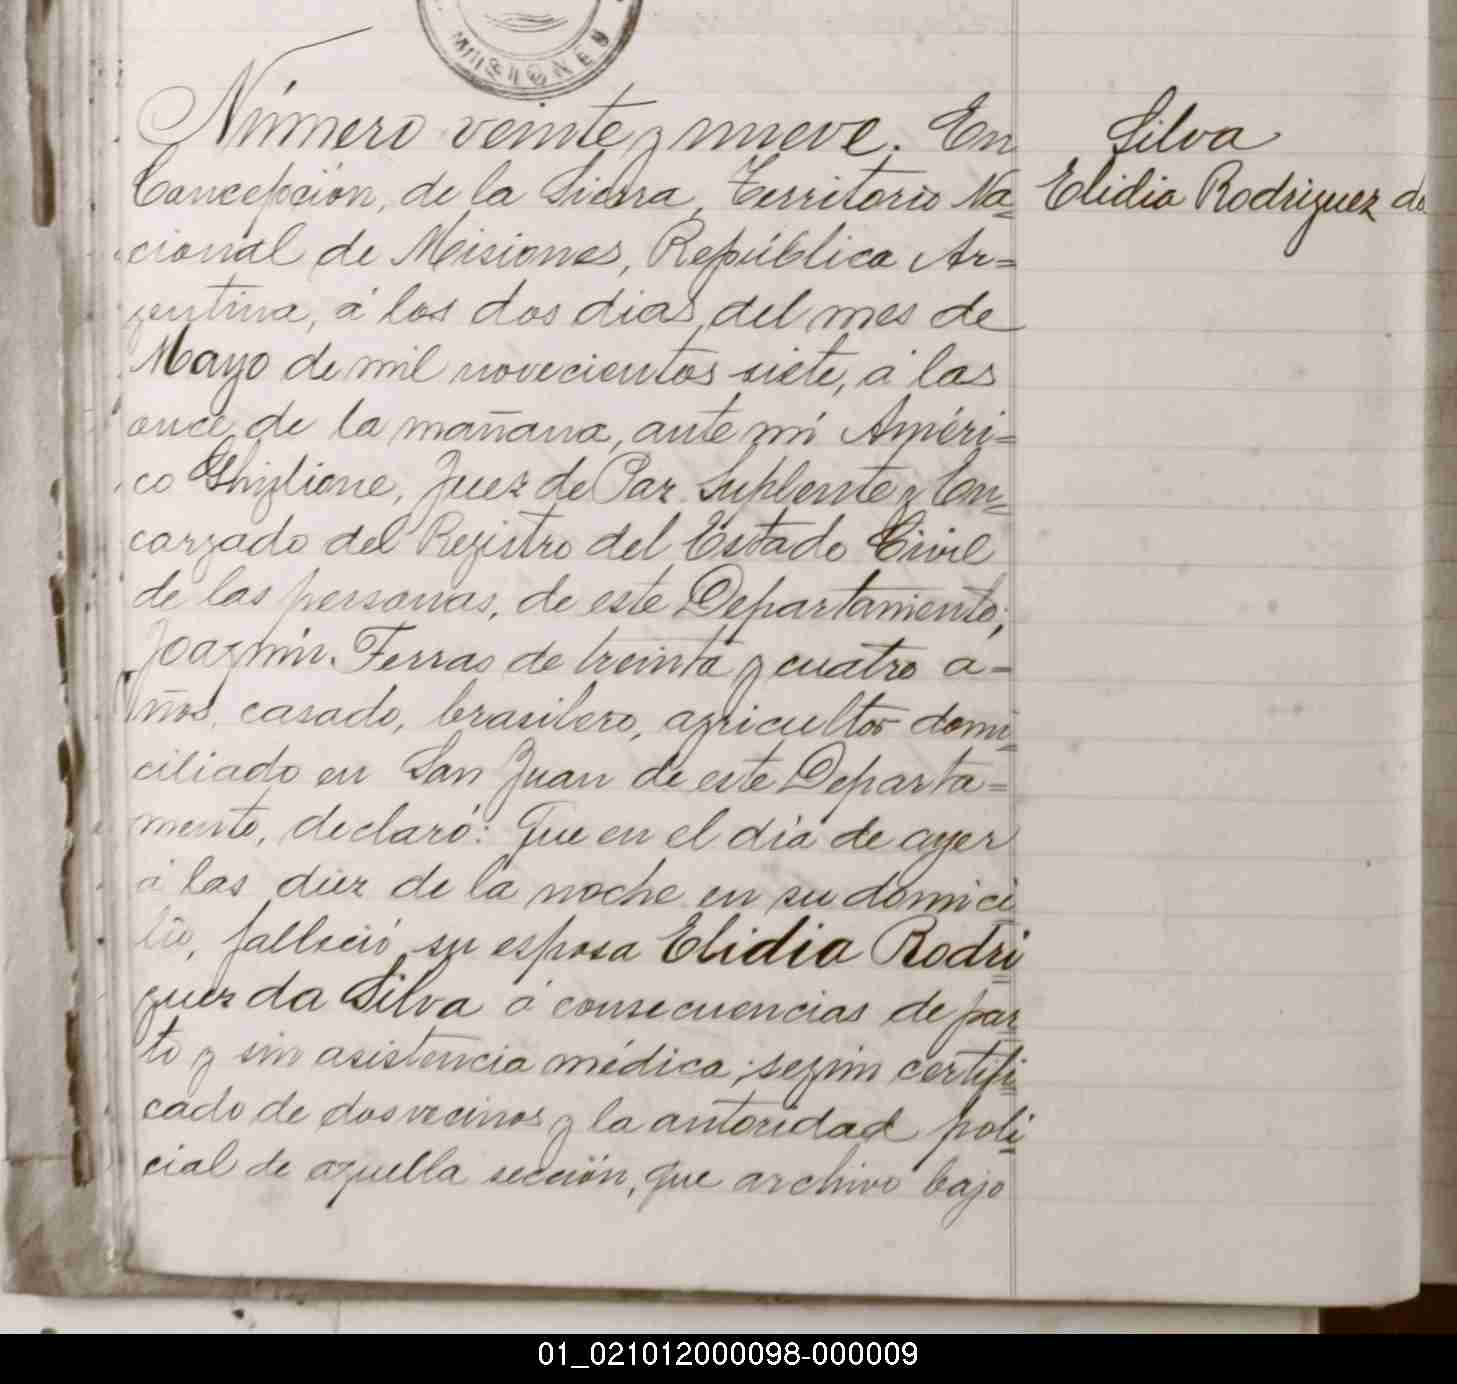 MISIONES
Número veinte y nueve. En
Concepción, de la Sierra, Territorio Na=
cional de Misiones, República Ar=
gentina, á los dos dias del mes de
Mayo de mil novecientos siete, á las
once de la mañana, ante mí Améri=
co Ghiglione, Juez de Paz Suplente y En=
cargado del Registro del Estado Civil
de las personas, de este Departamento;
Joaquin Ferras de treinta y cuatro a=
ños, casado, brasilero, agricultor domi=
ciliado en San Juan de este Departa=
mento, declaró: Que en el dia de ayer
á las diez de la noche en su domici
lio, falleció su esposa Elidia Rodri
guez da Silva á consecuencias de par
to y sin asistencia médica; según certifi
cado de dos vecinos y la autoridad poli
cial de aquella sección, que archivo bajo
Silva
Elidia Rodriguez da
01_021012000098-000009